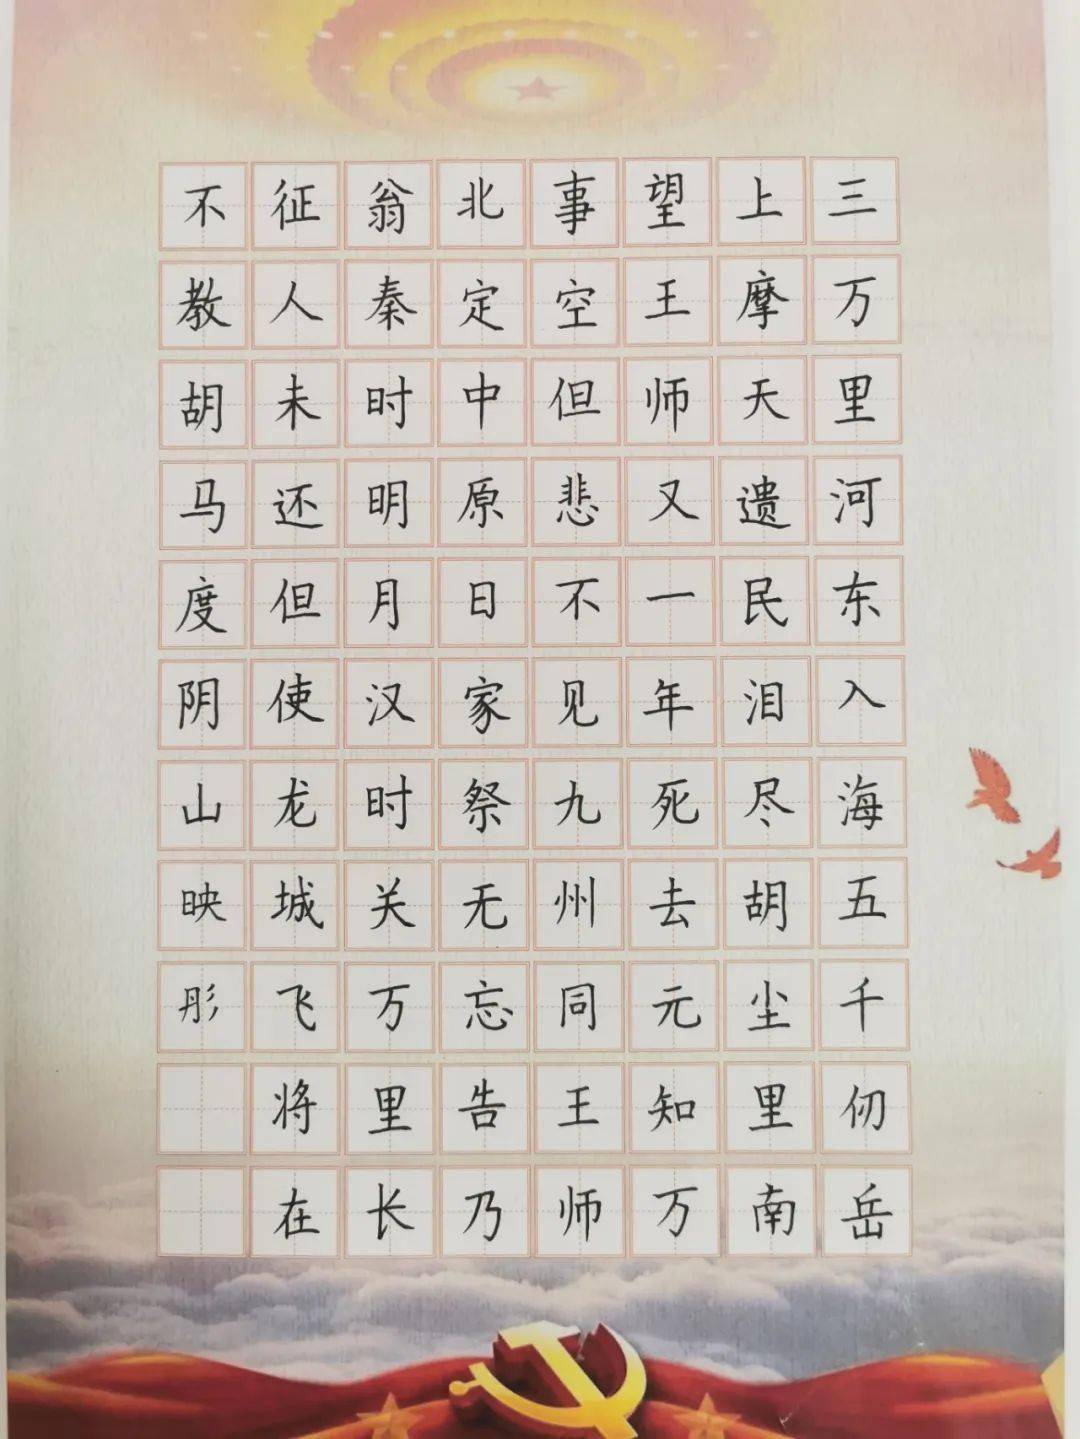 三万里河东入海五千仞岳
上摩天遗民泪尽胡尘里南
望王师又一年死去元知万
事空但悲不见九州同王师
北定中原日家祭无忘告乃
翁秦时明月汉时关万里长
征人未还但使龙城飞将在
不教胡马度阴山映彤